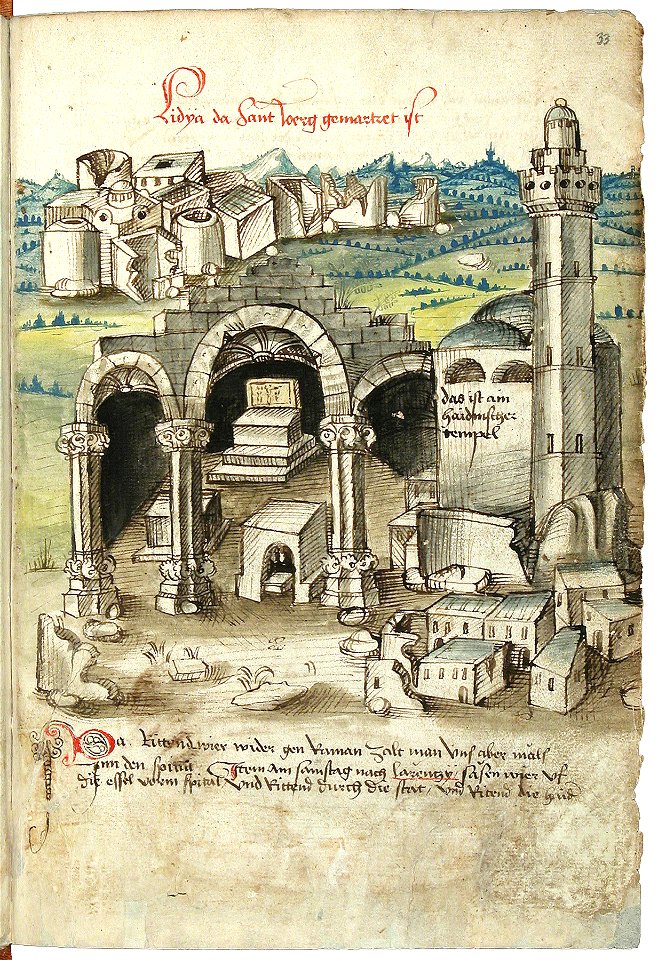 33
Lidya da Sant Joerg gemartret ist
das ist ain
haidnischer
tempel
Da Rittend wier wider gen Raman Zalt man Vnß aber mals
jnn den spital Item am samstag nach larenczy / sasen wier vf
die essel vorm spital Vnd Rittend durch die stat / Vnd Ritend die